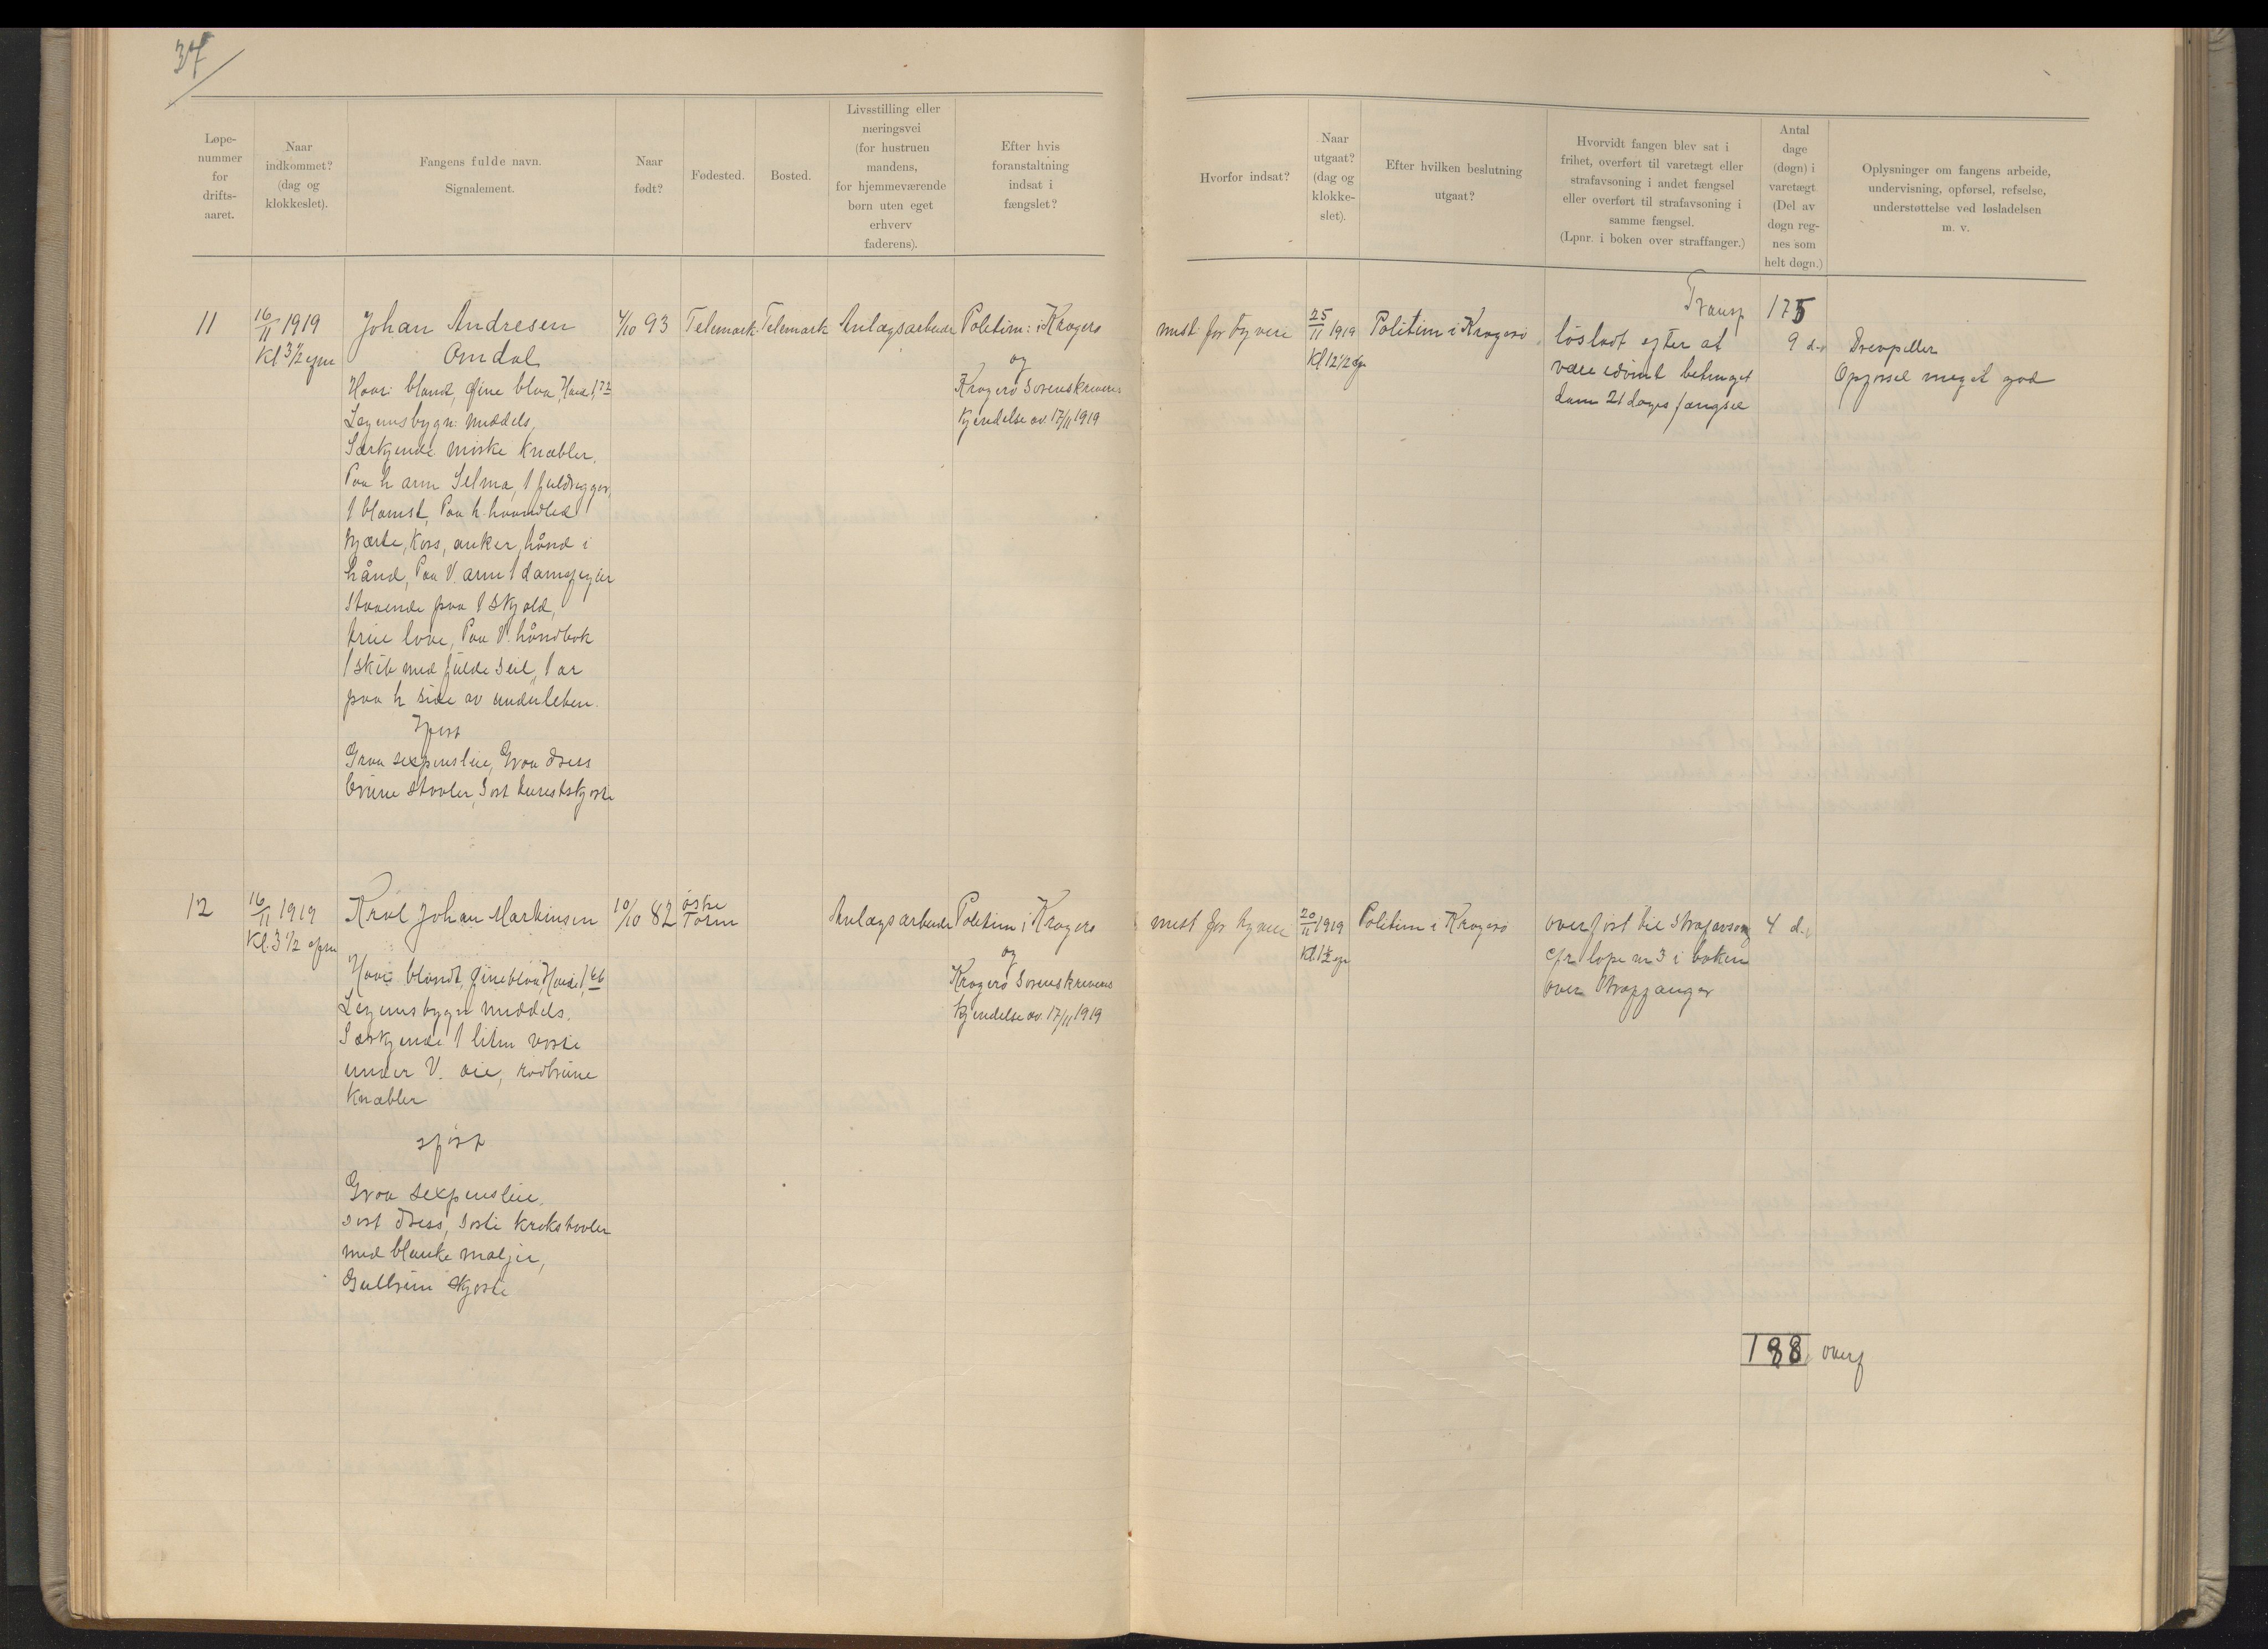 37
Løpe-
nummer
for
drifts-
aaret.
Naar
indkommet?
(dag og
klokkeslet).
Fangens fulde navn.
Signalement.
Naar
født?
Fødested.
Bosted.
Livsstilling eller
næringsvei
(for hustruen
mandens,
for hjemmeværende
børn uten eget
erhverv
faderens).
Efter hvis
foranstaltning
indsat i
fængslet?
Hvorfor indsat?
Naar
utgaat?
(dag og
klokke-
slet).
Efter hvilken beslutning
utgaat?
Hvorvidt fangen blev sat i
frihet, overført til varetægt eller
strafavsoning i andet fængsel
eller overført til strafavsoning i
samme fængsel.
(Lpnr. i boken over straffanger.)
Antal
dage
(døgn) i
varetægt
(Del av
døgn reg-
nes som
helt døgn.)
Oplysninger om fangens arbeide,
undervisning, opførsel, refselse,
understøttelse ved løsladelsen
m. v.
Transp 175
11
16/11 1919
Kl 3 1/2 efm
Johan Andresen
Omdal
4/10 93
Telemark
Telemark
Anlægsarbeider
Politim: i Kragerø
og
Kragerø Sorenskriveres
Kjendelse av. 17/11 1919
mist. for tyveri
25/11 1919
Kl 12 1/2
Politim i Kragerø
løsladt efter at
være idømt betinget
dom 21 dages fængsel
9 d.
Drevpiller
Opførsel meget god
Haar: blond, Øine blaa, Høide 1,72
Legemsbygn: middels,
Særkjende mørke knæbler.
Paa h arm Selma, 1 fuldrigger,
1 blomst, Paa h. haandled
hjærte, Kors, anker, hånd i
hånd, Paa V. arm 1 dame
staaende paa 1 skjold,
true love, Paa V. håndbak
1 skib med fulde seil, 1 ar
paa h side av underleben.
Iført
Graa sexpenslue, Graa dress
brune støvler, Sort turistskjorte
12
16/11 1919
Kl. 3 1/2 efm
Karl Johan Martinsen
10/10 82
østre
Toten
Anlægsarbeider
Politim i Kragerø
og
Kragerø Sorenskriveres
Kjendelse av. 17/11 1919
mist for tyveri
20/11 1919
Kl 1
Politim i Kragerø
overført til Strafavsong
cfr løpe nr 3 i boken
over Straffanger
4 d.
Haar: blondt, Øine blaa Høide 1,66
Legemsbygn middels.
Særkjende 1 liten vorte
under V. øie, rødbrune
knæbler
iført
Graa sexpenslue,
sort dress, sorte krokstøvler
med blanke maljer,
Gulbrun skjorte
188 overf